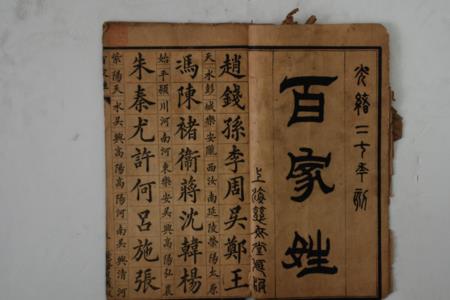 光緒二
百家姓
上海
趙錢孫李周吳鄭王
天水彭城樂安隴西汝南延陵滎陽太原
馮陳褚衛蔣沈韓楊
始平潁川河南河東樂安吳興高陽弘農
朱秦尤許何呂施張
紫陽天水吳興高陽高陽河南吳興清河